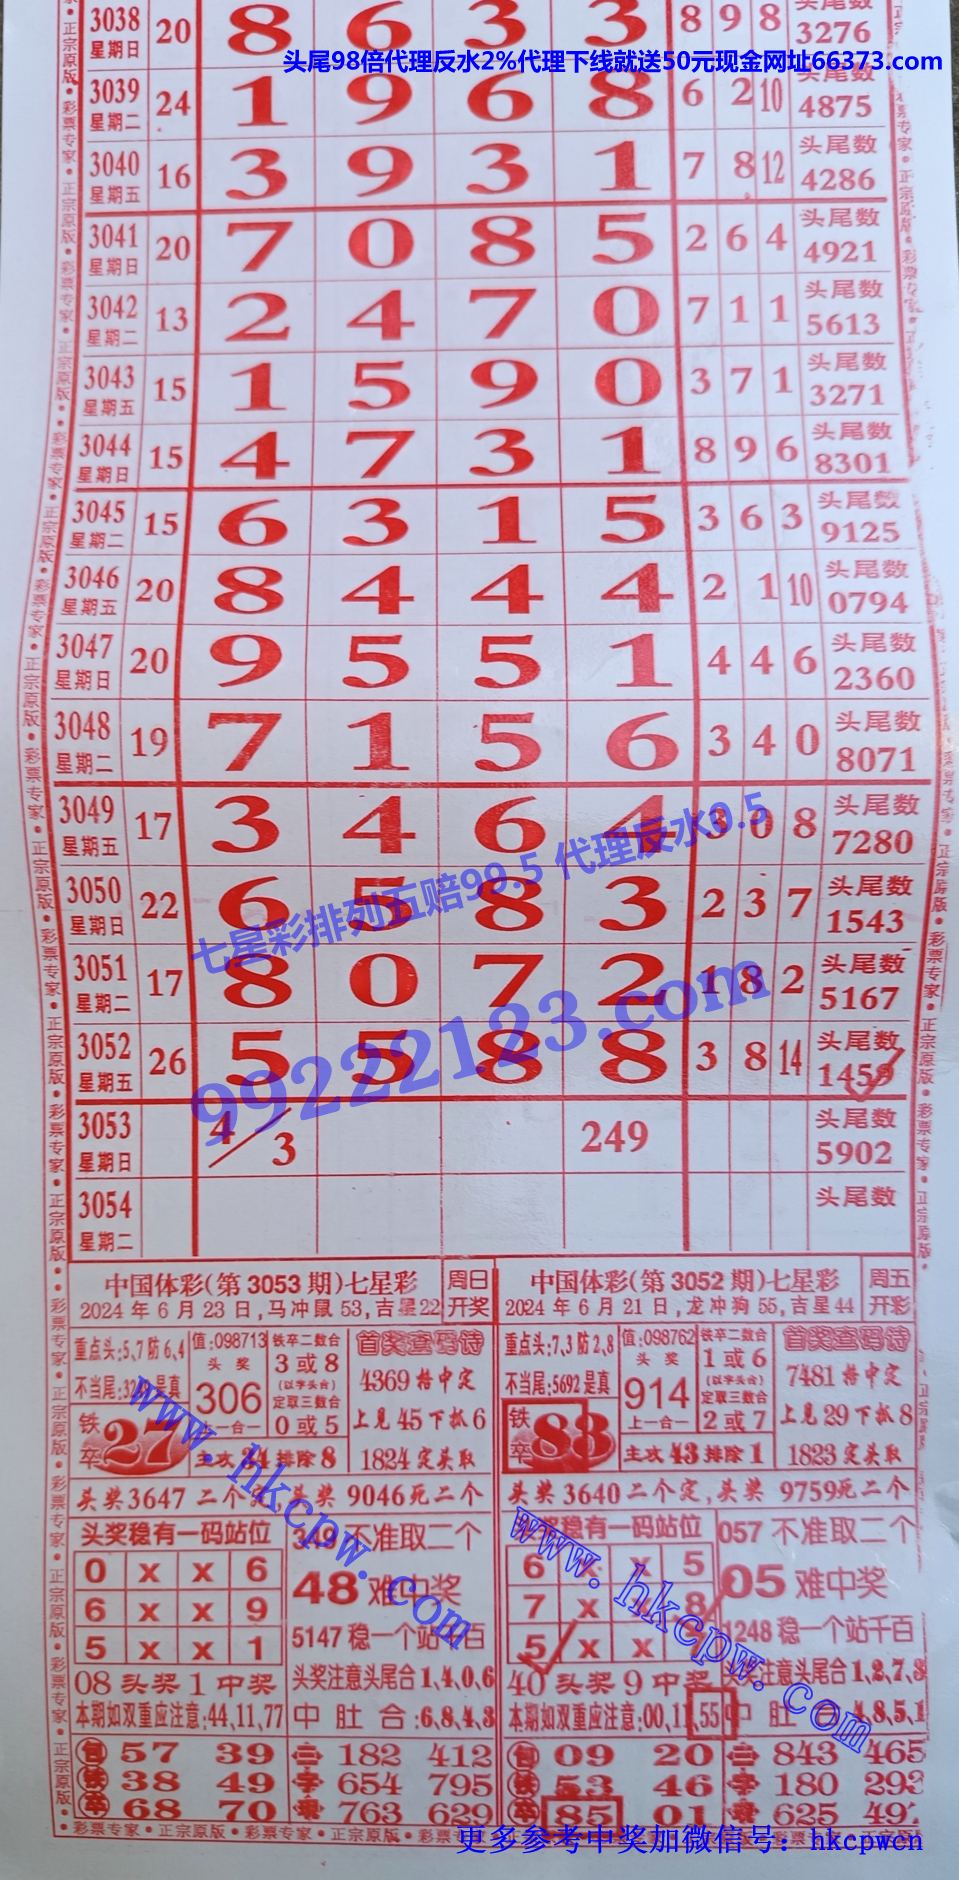 3038 星期日 20 8 6 3 3 8 9 8 头尾数 3276
头尾98倍代理反水2%代理下线就送50元现金网址66373.com
3039 星期二 24 1 9 6 8 6 2 10 头尾数 4875
3040 星期五 16 3 9 3 1 7 8 12 头尾数 4286
3041 星期日 20 7 0 8 5 2 6 4 头尾数 4921
3042 星期二 13 2 4 7 0 7 1 1 头尾数 5613
3043 星期五 15 1 5 9 0 3 7 1 头尾数 3271
3044 星期日 15 4 7 3 1 8 9 6 头尾数 8301
3045 星期二 15 6 3 1 5 3 6 3 头尾数 9125
3046 星期五 20 8 4 4 4 2 1 10 头尾数 0794
3047 星期日 20 9 5 5 1 4 4 6 头尾数 2360
3048 星期二 19 7 1 5 6 3 4 0 头尾数 8071
3049 星期五 17 3 4 6 4 3 0 8 头尾数 7280
七星彩排列五赔99.5 代理反水0.5
3050 星期日 22 6 5 8 3 2 3 7 头尾数 1543
3051 星期二 17 8 0 7 2 1 8 2 头尾数 5167
99222123.com
3052 星期五 26 5 5 8 8 3 8 14 头尾数 1459
3053 星期日 4/3 249 头尾数 5902
3054 星期二 头尾数
中国体彩(第3053期)七星彩 周日开奖
2024年6月23日,马冲鼠53,吉星22
重点头:5,7防6,4
值:098713
头奖
306
上一合一
铁卒二数合
3或8
(以字头合)
定取三数合
0或5
首奖查码诗
4369格中定
上见45下抓6
1824定头取
铁卒 27
主攻 34 排除8
9046死二个
头奖稳有一码站位
0 x x 6
6 x x 9
5 x x 1
349不准取二个
48难中奖
5147稳一个站千百
08头奖1中奖
头奖注意头尾合1,4,0,6
本期如双重应注意:44,11,77
中肚合:6,8,4,3
包 57 39
铁 38 49
卒 68 70
三 182 412
字 654 795
763 629
中国体彩(第3052期)七星彩 周五开彩
2024年6月21日,龙冲狗55,吉星44
重点头:7,3防2,8
不当尾:5692是真
值:098762
头奖
914
上一合一
铁卒二数合
1或6
(以字头合)
定取三数合
2或7
首奖查码诗
7481格中定
上见29下抓8
1823定头取
铁卒 83
主攻 43 排除1
头奖3640二个定,头奖 9759死二个
头奖稳有一码站位
6 x x 5
7 x 8
5 x x
057不准取二个
05难中奖
1248稳一个站千百
40头奖9中奖
头奖注意头尾合1,2,7,3
本期如双重应注意:00,11,55
中肚合 4,8,5,1
包 09 20
铁 53 46
卒 85 01
三 843 465
字 180 293
625
www.hkcpw.com
www.hkcpw.com
彩票专家•正宗原版•彩票专家•正宗原版•彩票专家•正宗原版
更多参考中奖加微信号：hkcpwcn